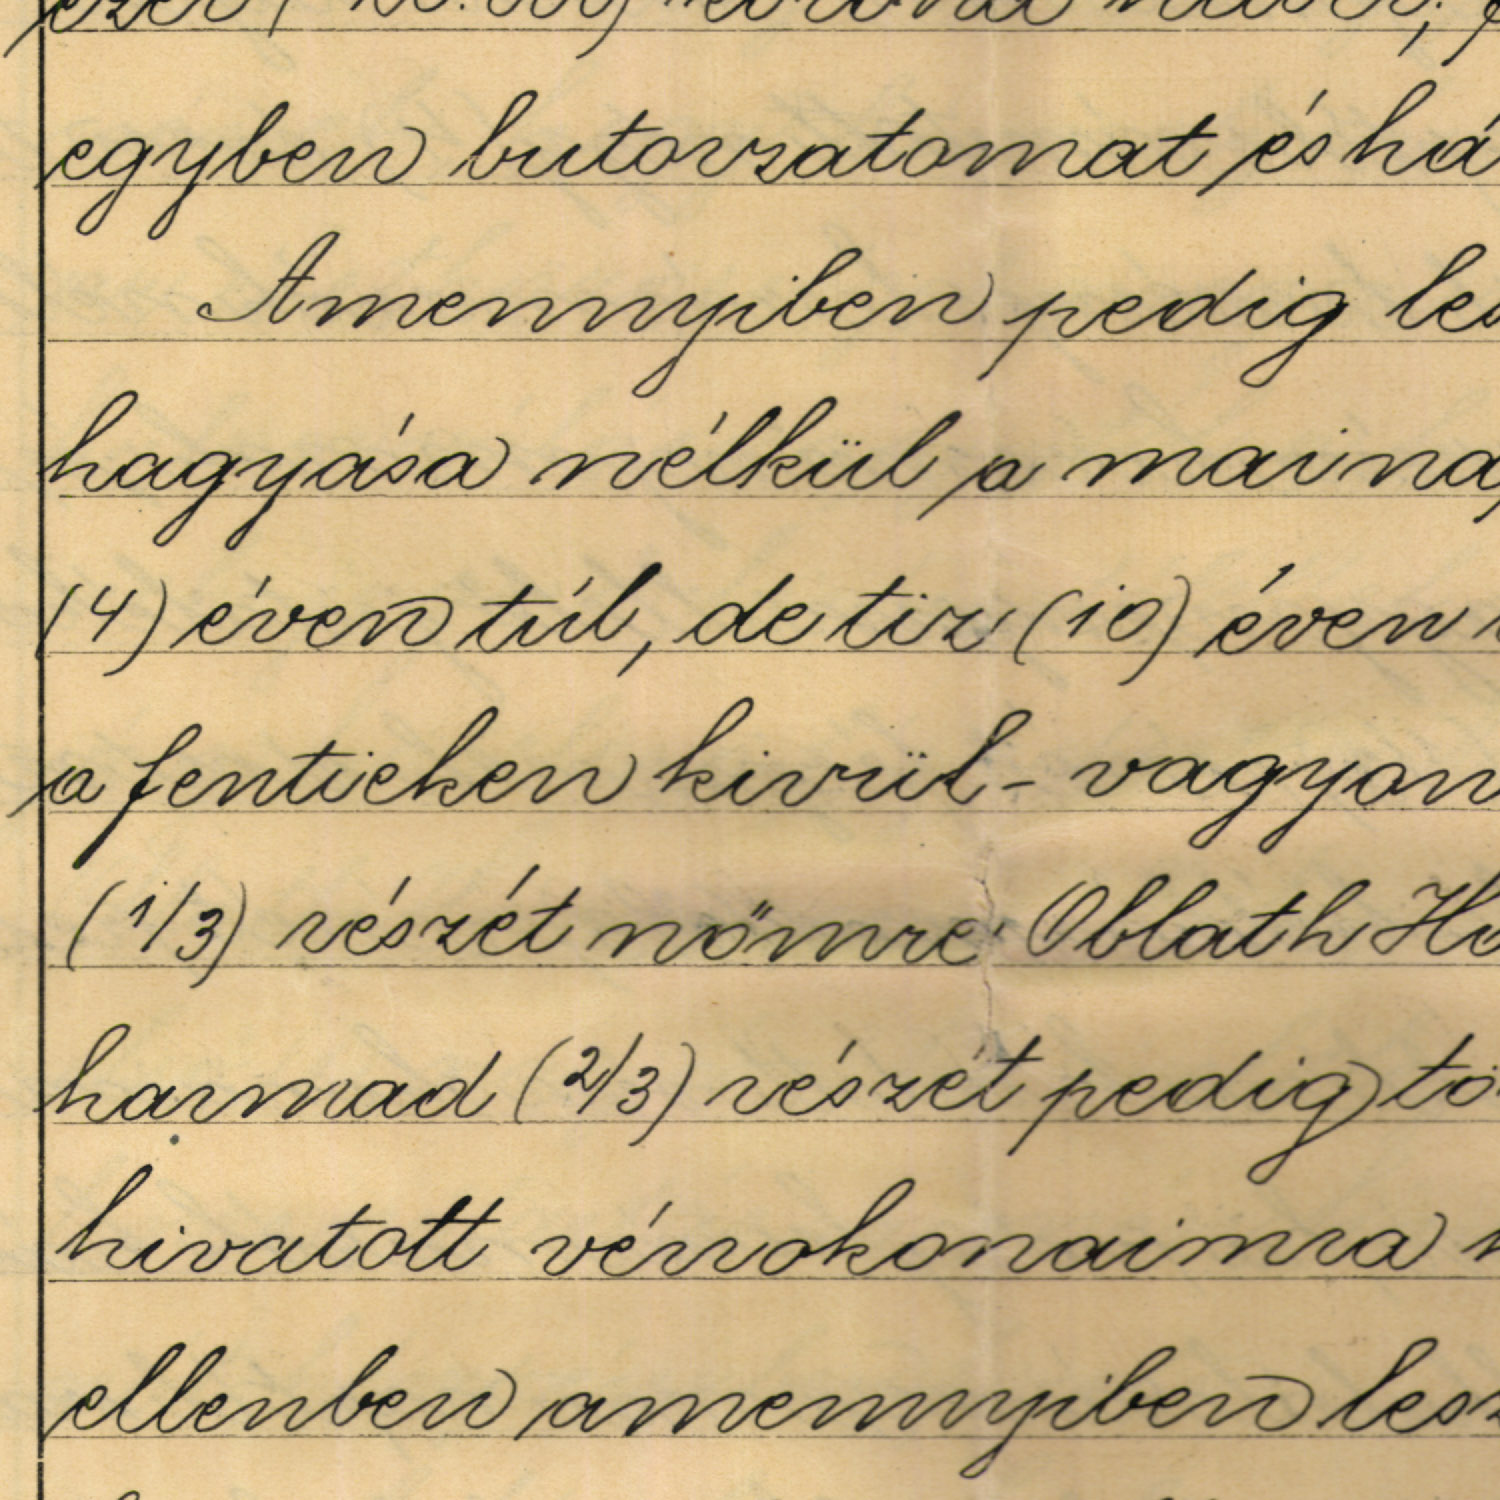 egyben butorzatomat és há
Amennyiben pedig les
hagyása nélkül a mai na
(4) éven túl, de tiz (10) éven
a fentieken kivül - vagyon
(1/3) részét nőmre Oblath H
harmad (2/3) részét pedig tö
hivatott vérrokonaimra
ellenben amennyiben lesz